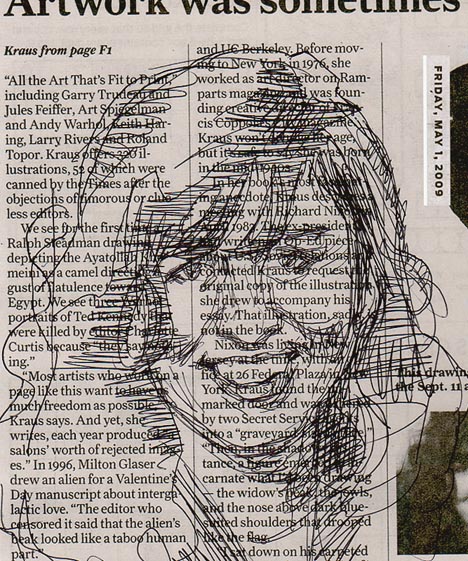 Artwork was sometimes
Kraus from page F1
"All the Art That's Fit to Print,"
including Garry Trudeau and
Jules Feiffer, Art Spiegelman
and Andy Warhol, Keith Har-
ing, Larry Rivers and Roland
Topor. Kraus offers 320 il-
lustrations, 52 of which were
canned by the Times after the
objections of humorous or clue-
less editors.
We see for the first time a
Ralph Steadman drawing
depicting the Ayatollah
meini as a camel directing a
gust of flatulence toward
Egypt. We see three
portraits of Ted Kennedy that
were killed by editor Charlotte
Curtis because "they say
ing."
"Most artists who work on a
page like this want to have
much freedom as possible,"
Kraus says. And yet, she
writes, each year produced "a
salons' worth of rejected imag-
es." In 1996, Milton Glaser
drew an alien for a Valentine's
Day manuscript about interga-
lactic love. "The editor who
censored it said that the alien's
beak looked like a taboo human
part."
and UC Berkeley. Before mov-
ing to New York in 1976, she
worked as art director on Ram-
parts magazine and was foun-
ding creative
cis Coppola's
Kraus won't her age,
but it's safe to say she was born
in the
In her book's most
ing anecdote, Kraus des
meeting with Richard Nixon
1982. The ex-president
had written an Op-Ed piece
about relations and
contacted Kraus to request
original copy of the illustration
she drew to accompany his
essay. That illustration, sadly, is
not in the book.
Nixon was living in New
Jersey at the time, with an
at 26 Federal Plaza in New
York. Kraus found the
marked door and was
by two Secret Service
into a "graveyard
"Then, in the shadow
tance, a figure
carnate what I'd been drawing
— the widow's peak, the jowls,
and the nose above dark blue-
suited shoulders that drooped
like the flag.
"I sat down on his carpeted
FRIDAY, MAY 1, 2009
This drawing
the Sept. 11 a